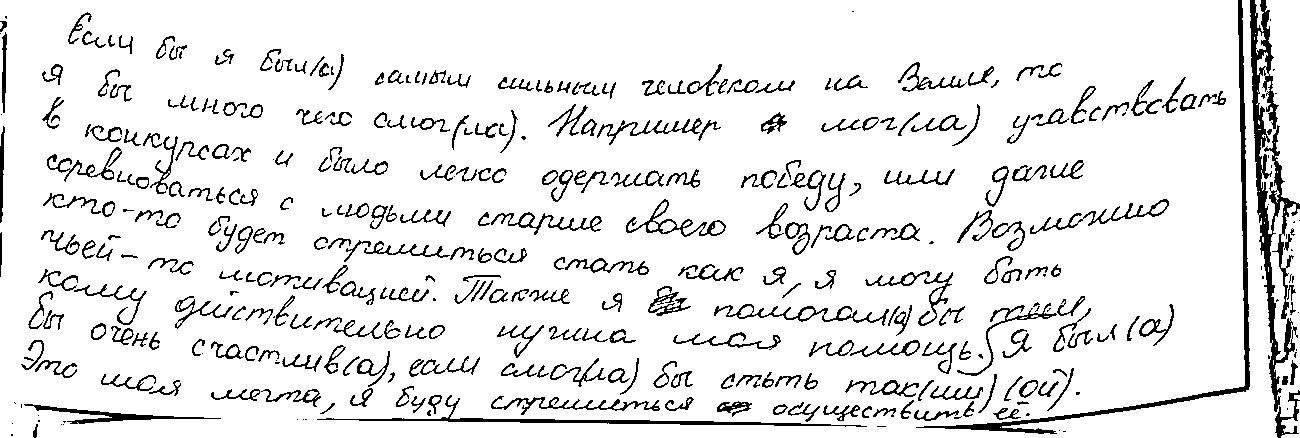 Если бы я был(а) самым сильным человеком на Земле, то
я бы много чего смог(ла). Например мог(ла) учавствовать
в конкурсах и было легко одержать победу, или даже
соревноваться с людьми старше своего возраста. Возможно
кто-то будет стремиться стать как я, я могу быть
чьей-то мотивацией. Также я помогал(а) бы тем,
кому действительно нужна моя помощь. Я был(а)
бы очень счастлив(а), если смог(ла) бы стьть так(им) (ой).
Это моя мечта, я буду стремиться осуществить её.